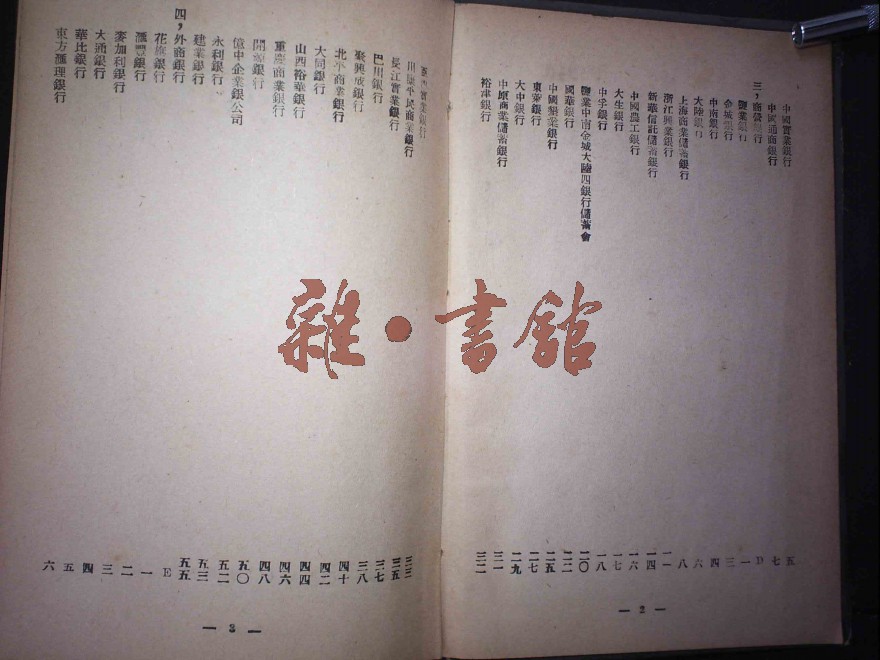 中國實業銀行 五
中國通商銀行 七
三，商營銀行 D
鹽業銀行 一
金城銀行 三
中南銀行 四
大陸銀行 六
上海商業儲蓄銀行 八
浙江興業銀行 一一
新華信託儲蓄銀行 一四
中國農工銀行 一六
大生銀行 一七
中孚銀行 一八
鹽業中南金城大陸四銀行儲蓄會 二〇
國華銀行 二二
中國墾業銀行 二五
東萊銀行 二七
大中銀行 二九
中原商業儲蓄銀行 三一
裕津銀行 三二
— 2 —
實業銀行 三三
川康平民商業銀行
長江實業銀行 三五
巴川銀行 三七
聚興誠銀行 三八
北平商業銀行 四十
大同銀行 四二
山西裕華銀行 四四
重慶商業銀行 四六
開源銀行 四八
億中企業銀公司 五〇
永利銀行 五二
建業銀行 五三
四，外商銀行 E
花旗銀行 一
滙豐銀行 二
麥加利銀行 三
大通銀行 四
華比銀行 五
東方滙理銀行 六
— 3 —
雜·書館